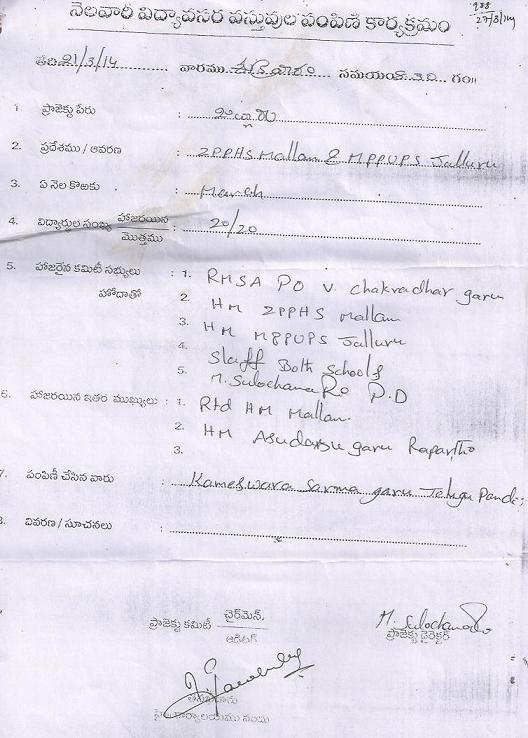 నెలవారీ విద్యావసర వస్తువుల పంపిణీ కార్యక్రమం
27/3/14
తేది 21/3/14 వారము శుక్రవారం సమయం గం॥
1. ప్రాజెక్టు పేరు :
2. ప్రదేశము / ఆవరణ : ZPPHS Mallam & MPPUPS Jalluru
3. ఏ నెల కొఱకు : March
4. విద్యార్థుల సంఖ్య హాజరయిన / మొత్తము : 20/20
5. హాజరైన కమిటీ సభ్యులు హోదాతో : 1. RMSA PO V. Chakradhar garu
2. HM ZPPHS Mallam
3. HM MPPUPS Jalluru
4. Staff Both Schools
5. M. Sulochana Ro P.D
6. హాజరయిన ఇతర ముఖ్యులు : 1. Rtd HM Mallam.
2. HM garu
3.
7. పంపిణీ చేసిన వారు : Kameswara Sarma garu Telugu Pandi
8. వివరణ / సూచనలు :
ప్రాజెక్టు కమిటీ చైర్‌మెన్. / ఆడిటర్
M. Sulochana
ప్రాజెక్టు డైరెక్టర్